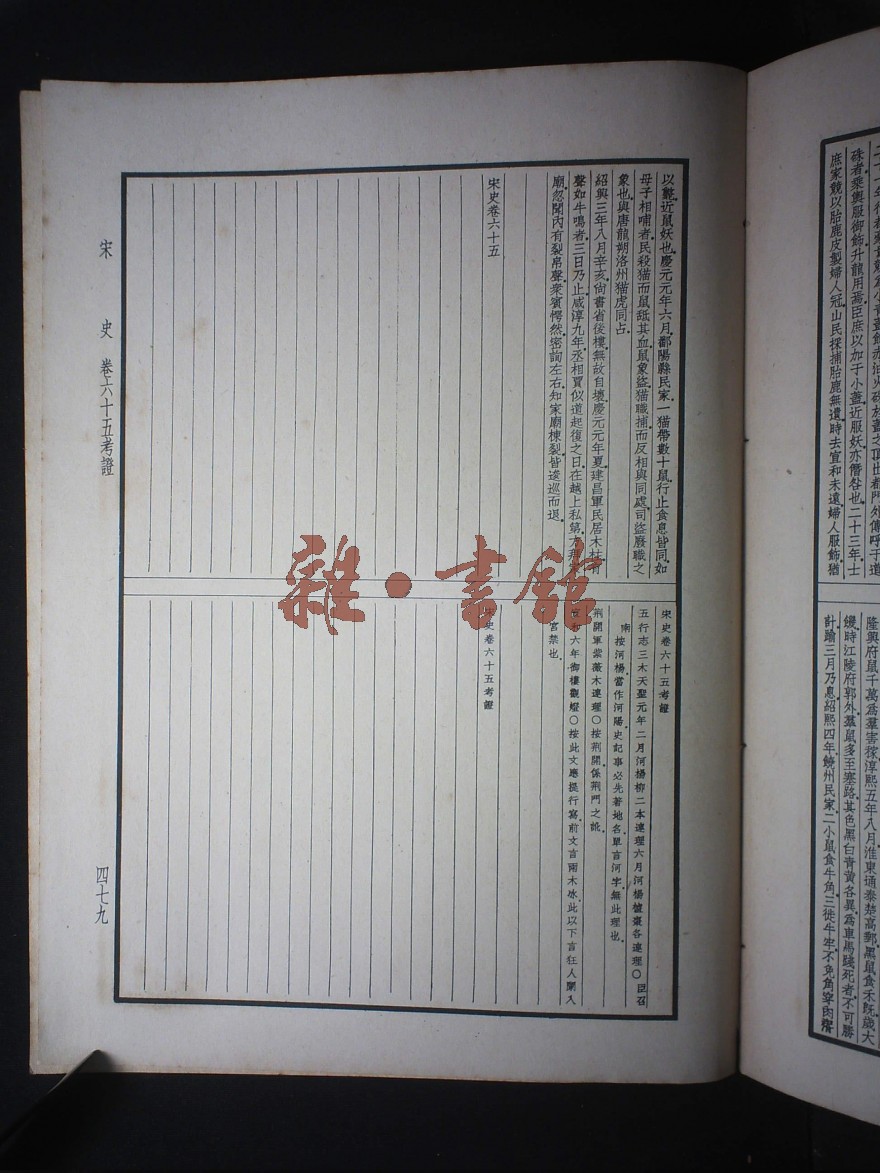 以鼈近鼠妖也慶元元年六月鄱陽縣民家一猫帶數十鼠行止食息皆同如
母子相哺者民殺猫而鼠舐其血鼠象盜猫職捕而反相與同處司盜廢職之
象也與唐龍朔洛州猫虎同占
紹興三年八月辛亥尚書省後樓無故自壞慶元元年夏建昌軍民居木柱
聲如牛鳴者三日乃止咸淳九年丞相賈似道起復之日在越上私第方
廟忽聞內有裂帛聲衆賓愕然密詢左右知家廟棟裂皆逡巡而退
宋史卷六十五
宋史卷六十五考證
五行志三木天聖元年二月河楊柳二本連理六月河楊櫨棗各連理〇臣召
南按河楊當作河陽史記事必先著地名單言河字無此理也
荆開軍紫薇木連理〇按荆開係荆門之訛
和六年御樓觀燈〇按此文應提行寫前文言雨木冰此以下言狂人闌入
宮禁也
宋史卷六十五考證
宋史 卷六十五考證
四七九
硃者乘輿服御飾升龍用焉臣庶以加于小蓋近服妖亦僭咎也二十三年士
庶家競以胎鹿皮製婦人冠山民採捕胎鹿無遺時去宣和未遠婦人服飾猶
隆興府鼠千萬爲羣害稼淳熙五年八月淮東通泰楚高郵黑鼠食禾旣歲大
饑時江陵府郭外羣鼠多至塞路其色黑白青黄各異爲車馬踐死者不可勝
計踰三月乃息紹熙四年饒州民家二小鼠食牛角三徙牛牢不免角穿肉瘠
雜·書館